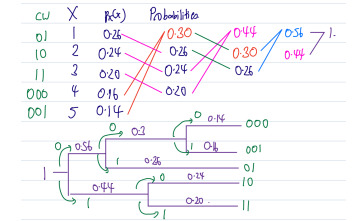 CW X Pr(x) Probabilities
01 1 0.26 0.30 0.44 0.56 1.
10 2 0.24 0.26 0.30 0.44
11 3 0.20 0.24 0.26
000 4 0.16 0.20
001 5 0.14
0 0.14 000
0 0.3
0 0.56 1 0.16 001
1 0.26 01
1 0.44 0 0.24 10
1 0.20 11
1